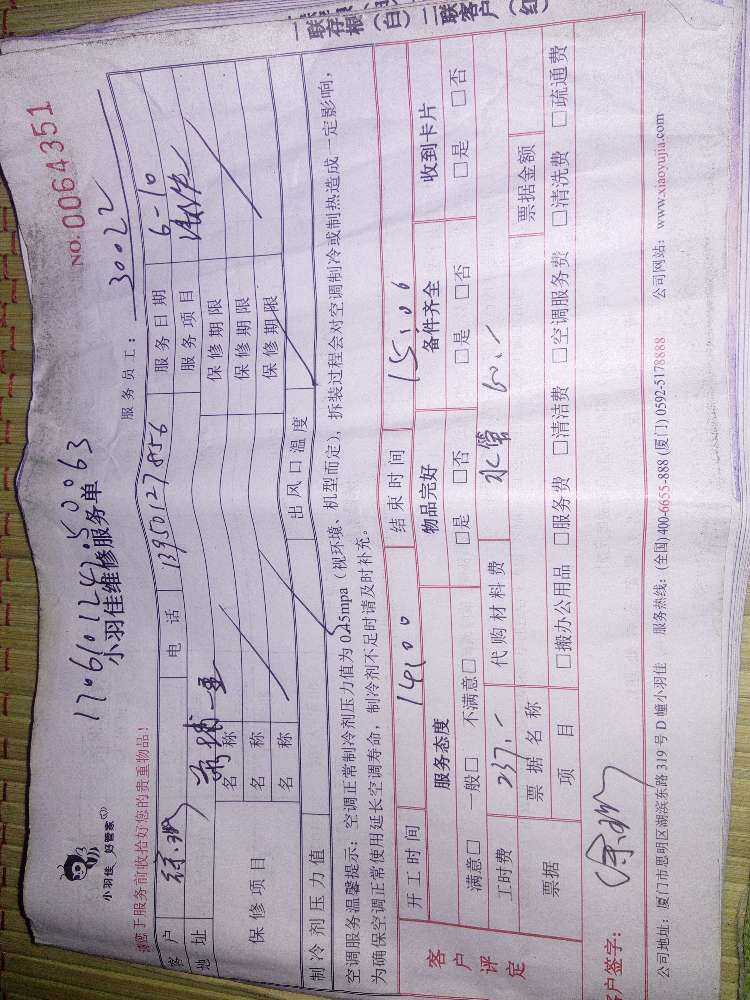 一联存根（白）二联客户（红
NO: 0064351
17061012425 0063
小羽佳维修服务单
小羽佳 好管家
服务员工： 30022
请您于服务前收拾好您的贵重物品！
客户 电话 13950127856 服务日期 6-10
地址 服务项目
保修项目
名称 保修期限
名称 保修期限
名称 保修期限
制冷剂压力值 出风口温度
空调服务温馨提示：空调正常制冷剂压力值为0.45mpa（视环境、机型而定），拆装过程会对空调制冷或制热造成一定影响，
为确保空调正常使用延长空调寿命，制冷剂不足时请及时补充。
开工时间 14:00 结束时间 15:06
客户评定
服务态度 物品完好 备件齐全 收到卡片
满意□ 一般□ 不满意□ □是 □否 □是 □否 □是 □否
工时费 237.- 代购材料费 水管 60.-
票据 票据名称 票据金额
项目 □搬办公用品 □服务费 □清洁费 □空调服务费 □清洗费 □疏通费
客户签字：
公司地址：厦门市思明区湖滨东路319号D幢小羽佳 服务热线：(全国)400-6655-888 (厦门)0592-5178888 公司网站：www.xiaoyujia.com